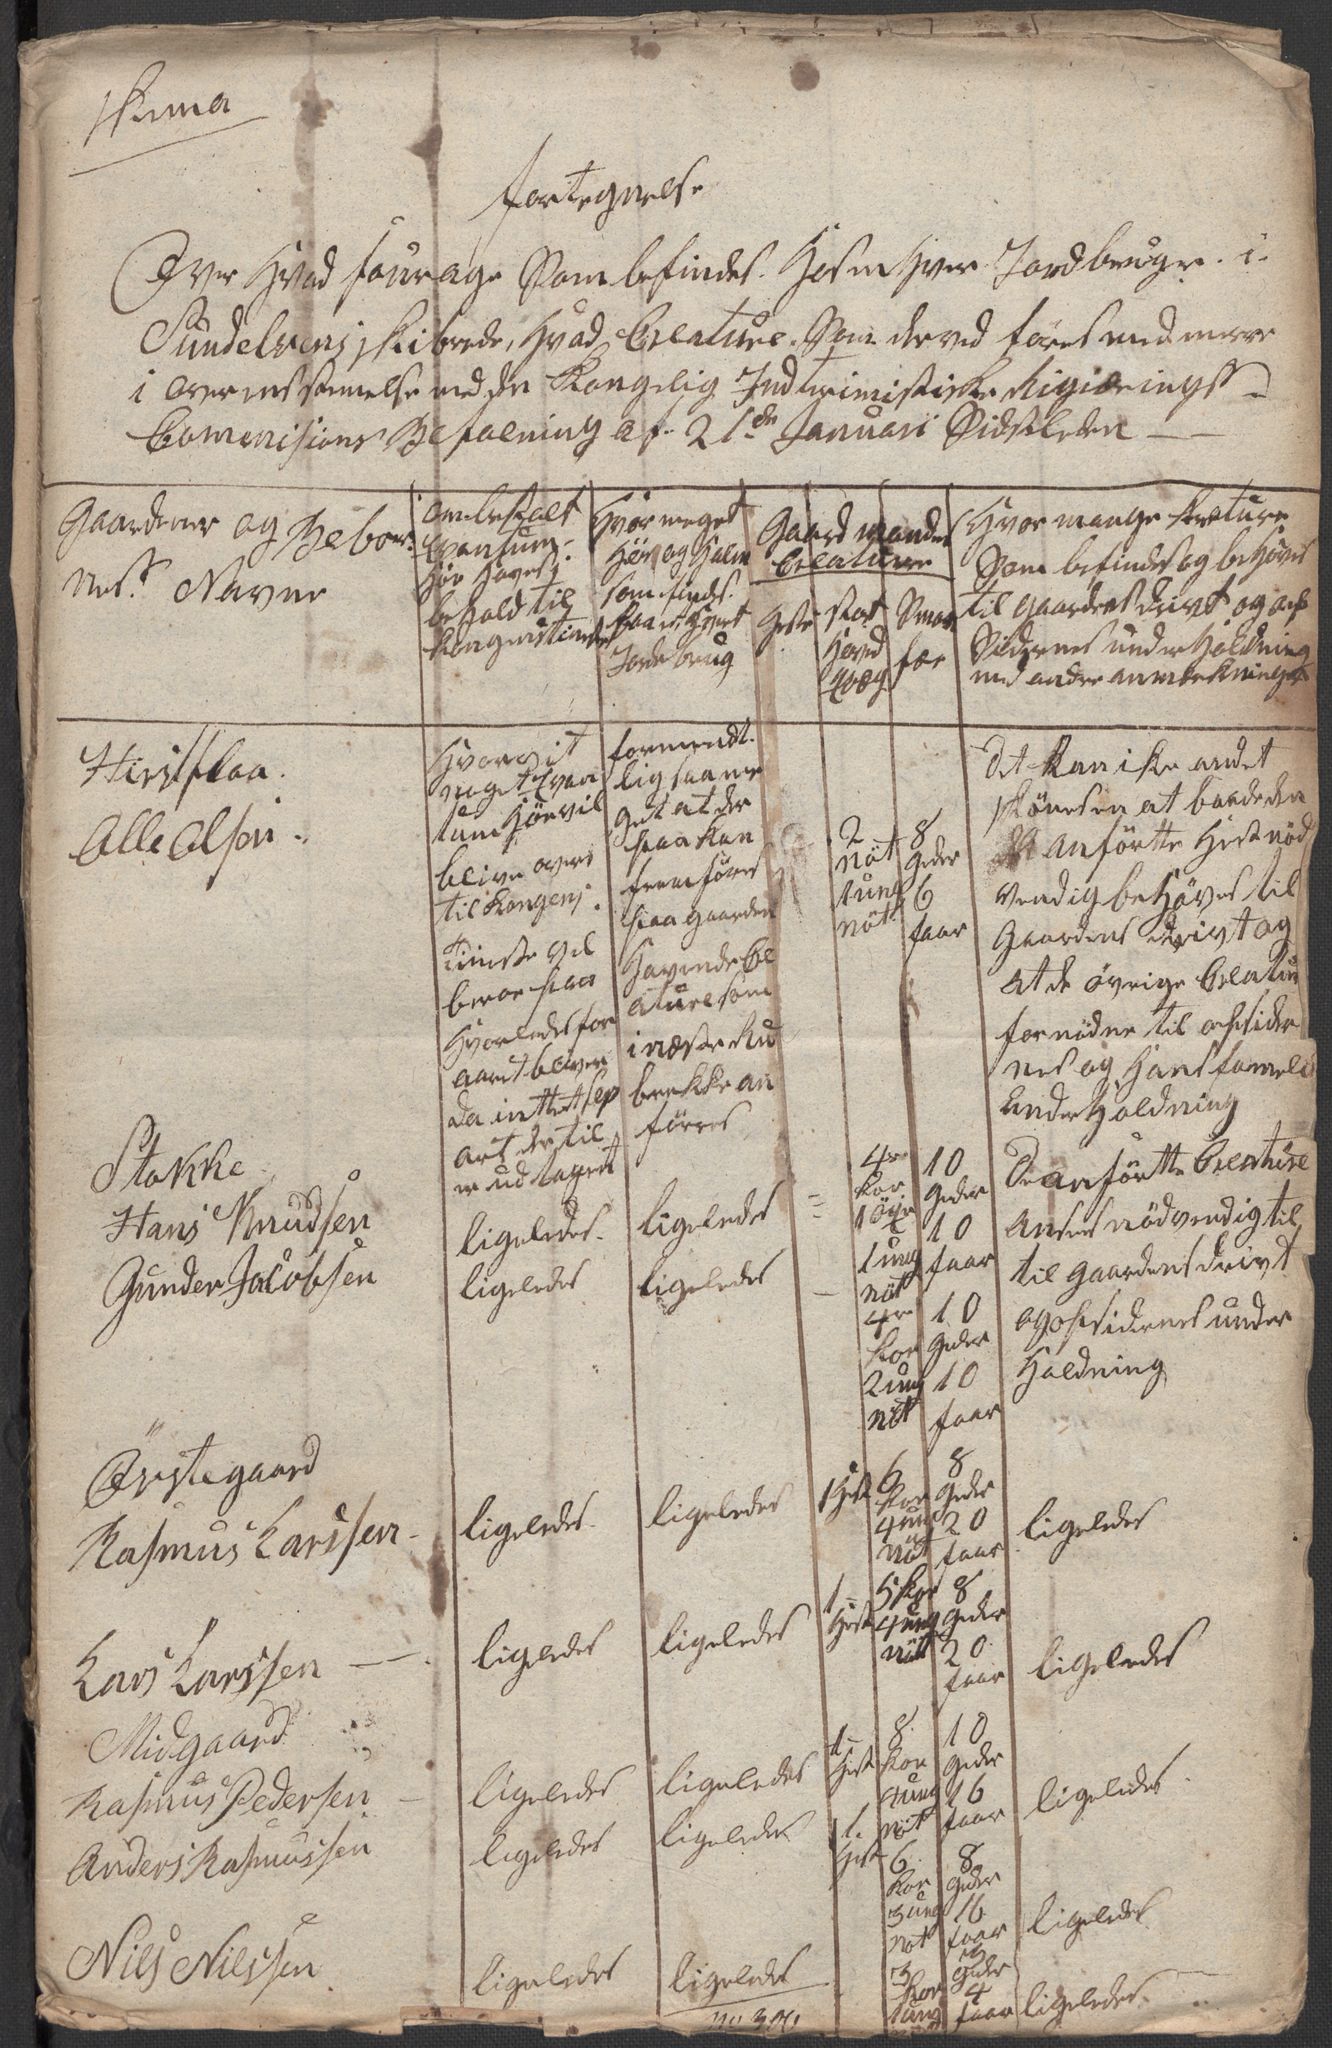 Skema
Fortegnelse
Over Hvad fourage Som befindes Hos en Hver Jordbruger i
Sündelvens skibrede, Hvad Creature Som derved föres med mere
i overensstemmelse med den Kongelig Indtrimistiske Regierings
Commisions Befalning af 21de Januari Sidstleden
Gaardenes og Bebоer-
nes Navne
om bestalt
qvantum
Höe haves i
behold til
Kongens tieneste
Hvor meget
Höe og Halm
som findes
paa et Hvert
Jordebrug
Gaard mandens
Creature
Heste
stort
Hoved
qvæg
Smaa
fæ
Hvor mange Creature
Som befindes og behöves
til Gaardens drivt og op-
Sidernes underholdning
med andre anmerkninger
Hirstflaa
Olle Olsen
Hvorvit
noget qvan
tum Höe vil
blive overs
til Kongens
tieneste vil
beroe paa
Hvorledes for
aaret bliver
da intet sep
art der til
er udtaget
formendt-
lig saa me
get at der
paa kan
fremföres
paa gaarden
Havende Cre
ature som
i næste Ru
brekke an
förres
2
nöt
1 ung
nöt
8
Geder
6
faar
Det kan ikke andet
skönnes en at baade den
anförtte Hest nöd
vendig behöves til
Gaardens drivt og
at de övrige Creatur
fornödne til opsider
nes og Hans familie
underholdning
Stokke
Hans Knudsen
ligeledes
ligeledes
4re
Kor
1 öxe
1 ung
nöt
10
Geder
10
faar
De anförtte Creature
ansees nödvendig til
til Gaardens drivt
og opsidernes under
Holdning
Gunder Jacobsen
ligeledes
ligeledes
4re
Kor
2 ung
nöt
10
Geder
10
faar
Östegaard
Rasmus Larssen
ligeledes
ligeledes
1 Hest
6
Kor
4 ung
nöt
8
Geder
20
faar
ligeledes
Lars Larssen
ligeledes
ligeledes
1
Hest
5 Kor
4 ung
nöt
8
Geder
20
faar
ligeledes
Midgaard
Rasmus Pedersen
ligeledes
ligeledes
1
Hest
8
Kor
4 ung
nöt
10
Geder
16
faar
ligeledes
Anders Rasmussen
ligeledes
ligeledes
1
Hest
6
Kor
3 ung
nöt
8
Geder
16
faar
ligeledes
Nils Nilssen
ligeledes
ligeledes
3
Kor
1 ung
3
geder
4
faar
ligeledes